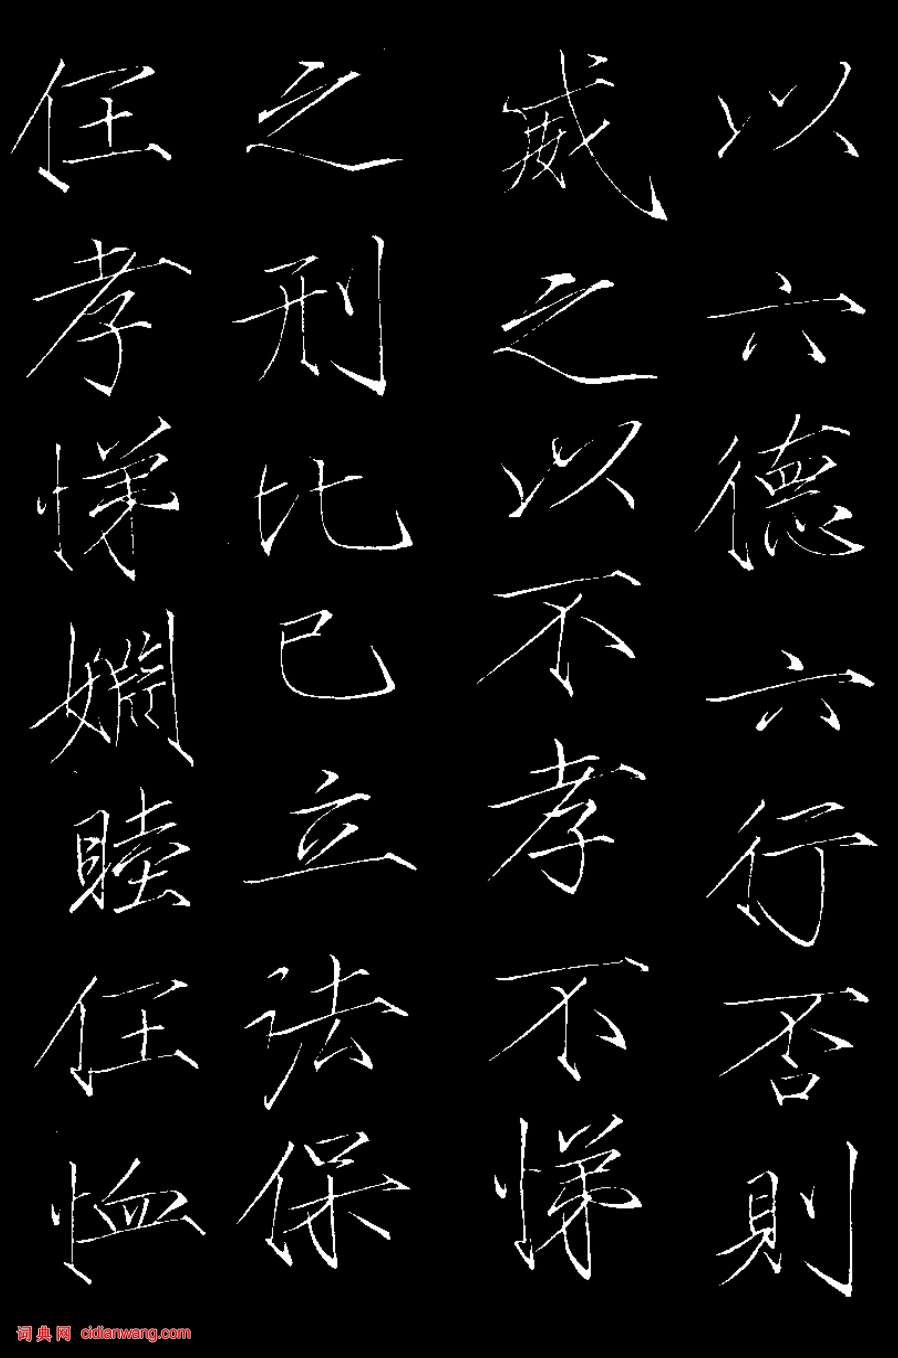 以六德六行否則
威之以不孝不悌
之刑比已立法保
任孝悌婣睦任恤
词典网 cidianwang.com